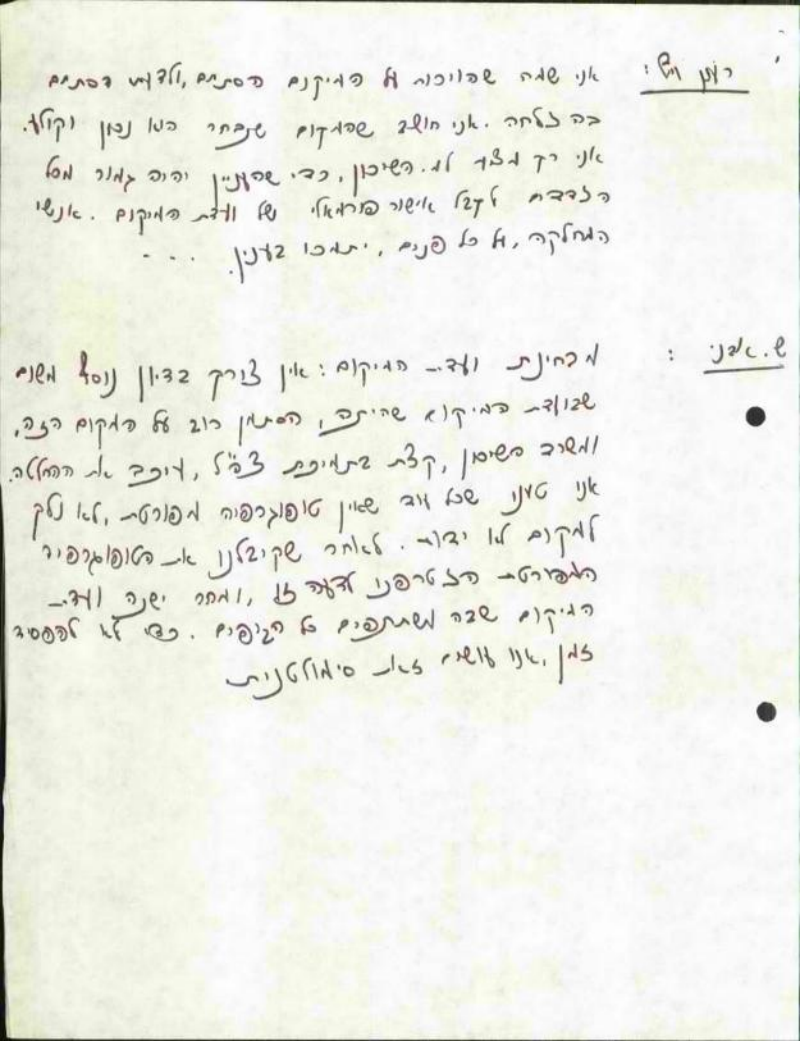 רענן וייץ: אני שמח שהויכוח על המיקום הסתיים, ולדעתי הסתיים
בהצלחה. אני חושב שהמקום שנבחר הוא נכון וקולע.
אני רק מציע למ. השיכון, כדי שהעניין יהיה גמור מכל
הצדדים לקבל אישור פורמאלי של ועדת המיקום. אנשי
המחלקה, על כל פנים, יתמכו בענין. . . .
ש. אבני: מבחינת ועדת המיקום: אין צורך בדיון נוסף משום
שבועדת המיקום שהיתה, הסתמן רוב על המקום הזה,
ומשרד השיכון, קצת בתמיכת צה"ל, עיכב את ההחלטה.
אני טענתי שכל עוד שאין טופוגרפיה מפורטת, לא נלך
למקום לא ידוע. לאחר שקיבלנו את הטופוגרפיה
המפורטת הצטרפנו לדעה זו, ומחר ישנה ועדת
המיקום שבה משתתפים כל הגופים. כדי לא להפסיד
זמן, אנו עושים זאת סימולטנית